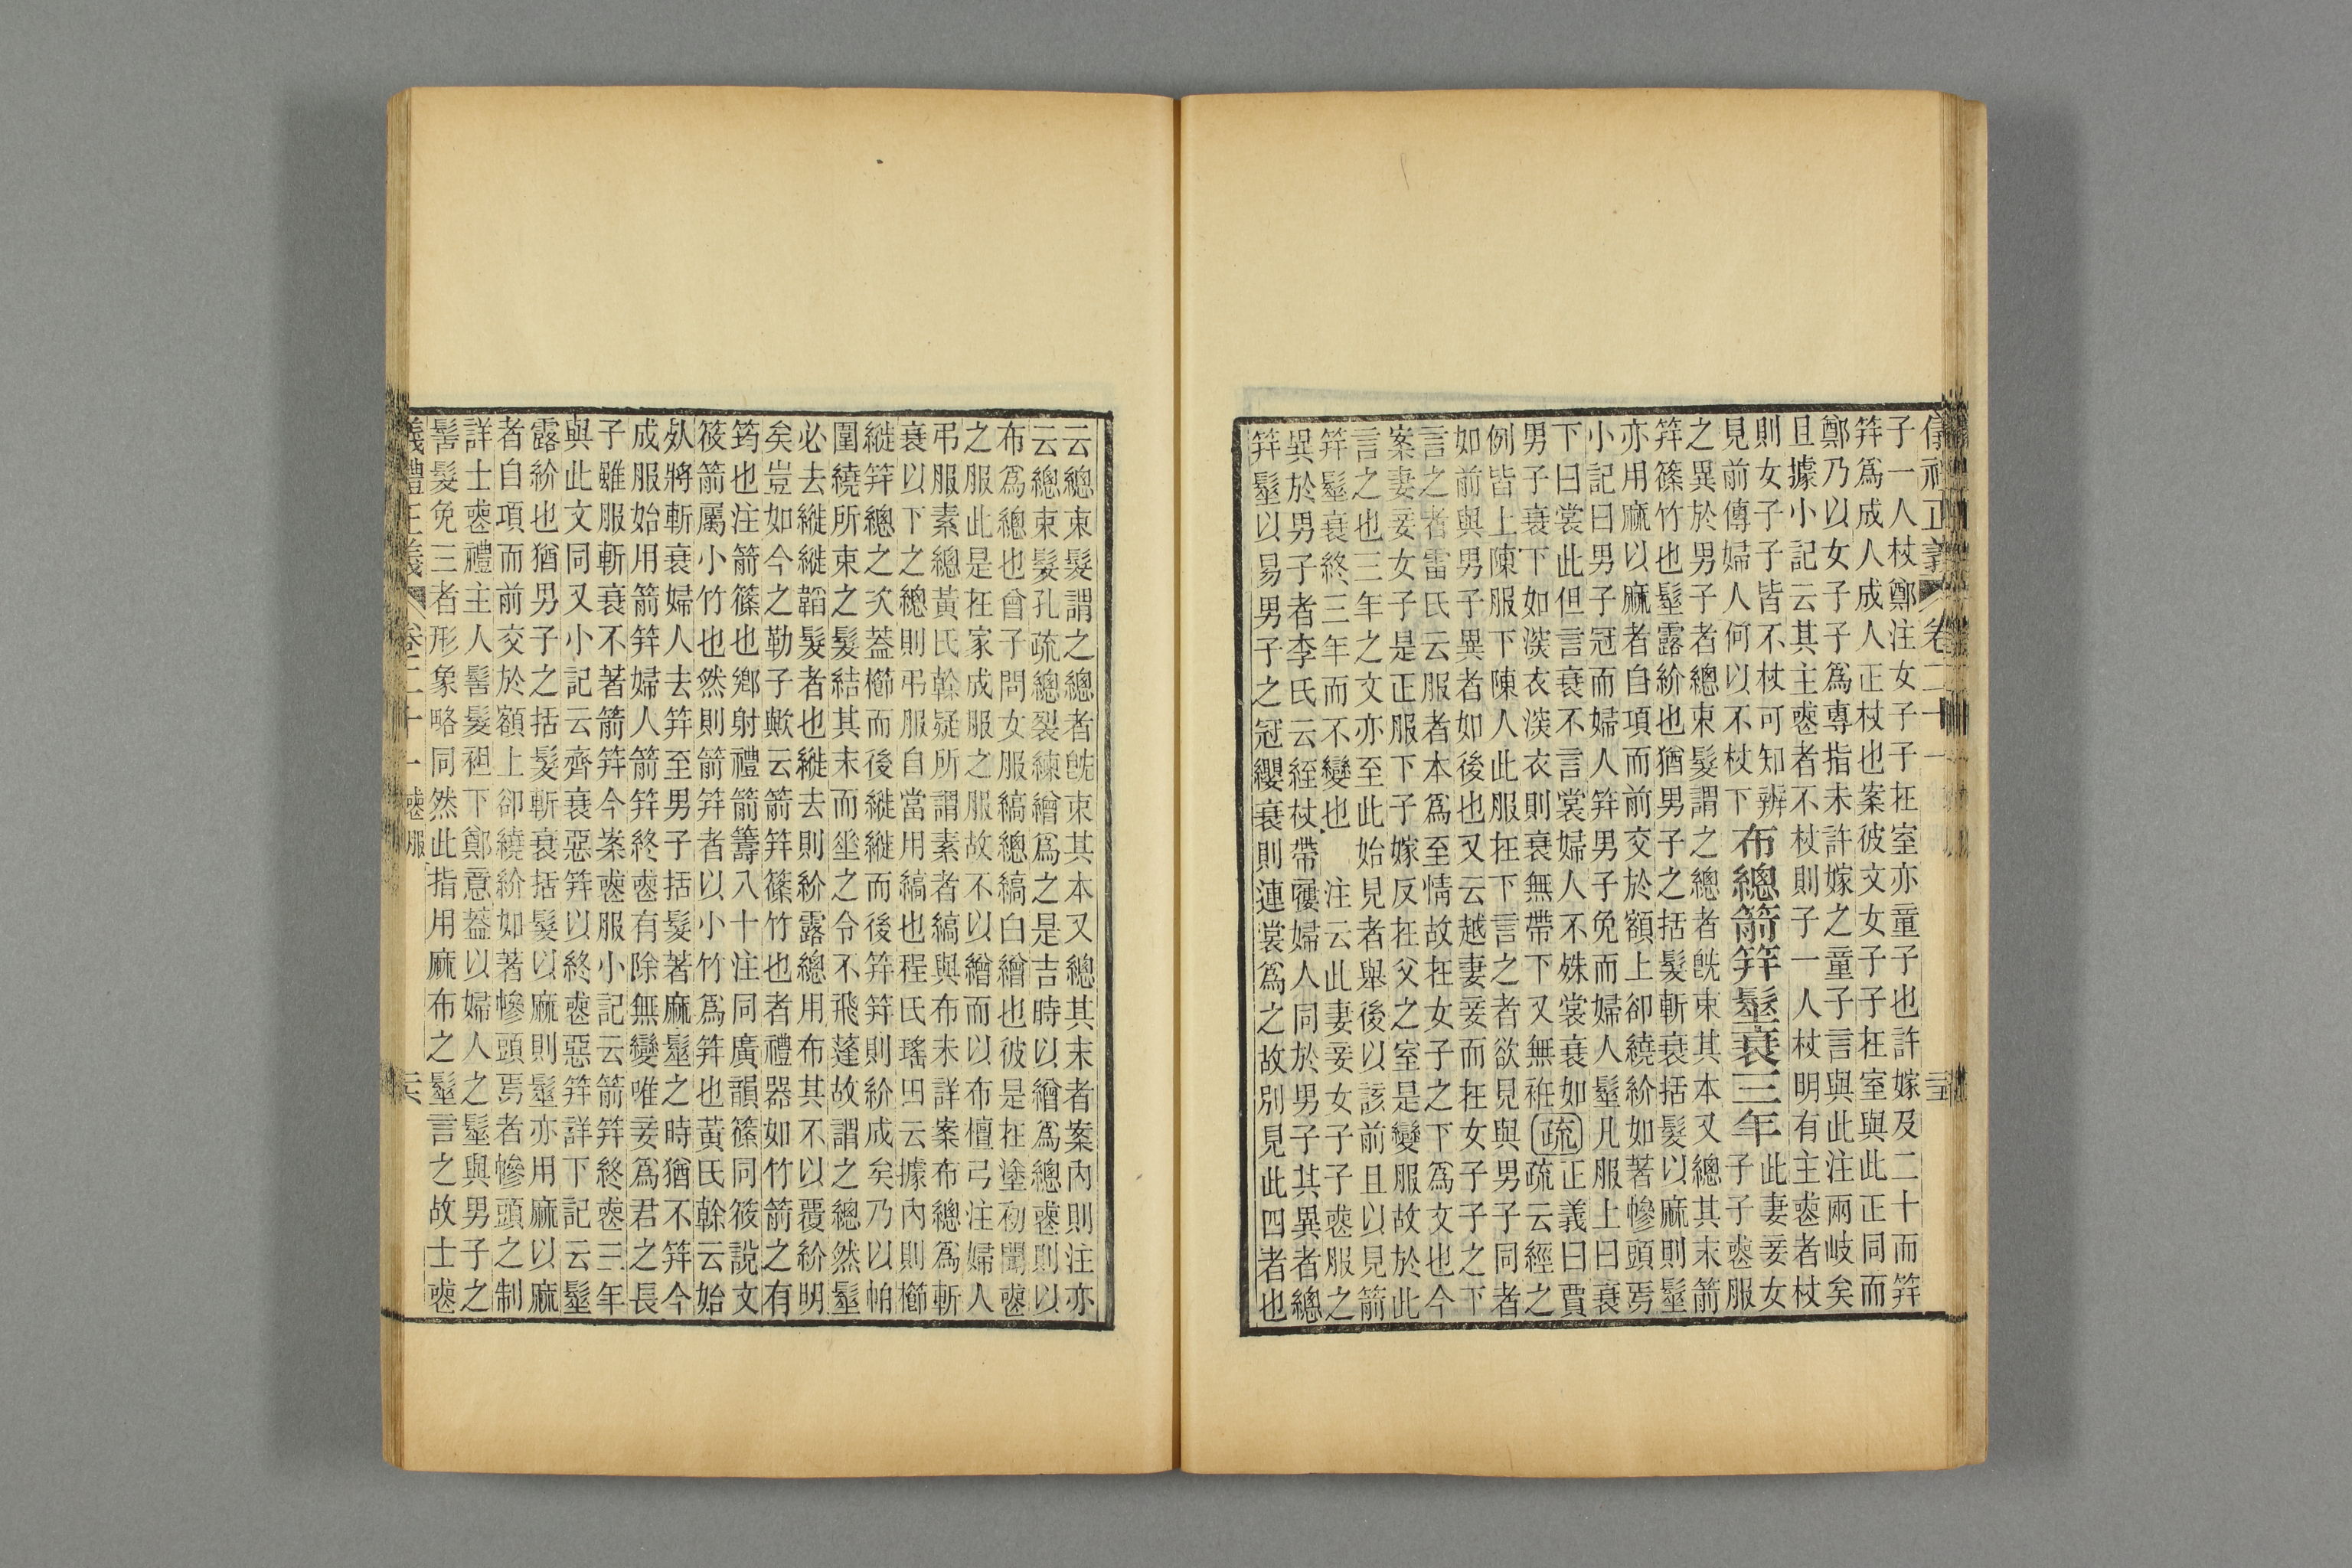 儀禮正義 卷二十一
子一人杖鄭注女子子在室亦童子也許嫁及二十而笄
笄爲成人成人正杖也案彼文女子子在室與此正同而
鄭乃以女子子爲專指未許嫁之童子言與此注兩岐矣
且據小記云其主喪者不杖則子一人杖明有主喪者杖
則女子子皆不杖可知辨
見前傳婦人何以不杖下
布總箭笄髽衰三年
此妻妾女
子子喪服
之異於男子者總束髮謂之總者旣束其本又總其末箭
笄篠竹也髽露紒也猶男子之括髮斬衰括髮以麻則髽
亦用麻以麻者自項而前交於額上卻繞紒如著幓頭焉
小記曰男子冠而婦人笄男子免而婦人髽凡服上曰衰
下曰裳此但言衰不言裳婦人不姝裳衰如
男子衰下如深衣深衣則衰無帶下又無衽
疏
正義曰賈
疏云經之
例皆上陳服下陳人此服在下言之者欲見與男子同者
如前與男子異者如後也又云越妻妾而在女子子之下
言之者雷氏云服者本爲至情故在女子之下爲文也今
案妻妾女子是正服下子嫁反在父之室是變服故於此
言之也三年之文亦至此始見者舉後以該前且以見箭
笄髽衰終三年而不變也 注云此妻妾女子子喪服之
異於男子者李氏云絰杖帶屨婦人同於男子其異者總
笄髽以易男子之冠纓衰則連裳爲之故別見此四者也
云總束髮謂之總者旣束其本又總其末者案內則注亦
云總束髮孔疏總裂練繒爲之是吉時以繒爲總喪則以
布爲總也曾子問女服縞總縞白繒也彼是在塗初聞喪
之服此是在家成服之服故不以繒而以布檀弓注婦人
弔服素總黃氏榦疑所謂素者縞與布未詳案布總爲斬
衰以下之總則弔服自當用縞也程氏瑤田云據內則櫛
縰笄總之次葢櫛而後縰縰而後笄笄則紒成矣乃以帕
圍繞所束之髮結其末而垂之令不飛蓬故謂之總然髽
必去縰縰韜髮者也縰去則紒露總用布其不以覆紒明
矣豈如今之勒子歟云箭笄篠竹也者禮器如竹箭之有
筠也注箭篠也鄉射禮箭籌八十注同廣韻篠同筱說文
筱箭屬小竹也然則箭笄者以小竹爲笄也黃氏榦云始
死將斬衰婦人去笄至男子括髮著麻髽之時猶不笄今
成服始用箭笄婦人箭笄終喪有除無變唯妾爲君之長
子雖服斬衰不著箭笄今案喪服小記云箭笄終喪三年
與此文同又小記云齊衰惡笄以終喪惡笄詳下記云髽
露紒也猶男子之括髮斬衰括髮以麻則髽亦用麻以麻
者自項而前交於額上卻繞紒如著幓頭焉者幓頭之制
詳士喪禮主人髺髮袒下鄭意葢以婦人之髽與男子之
髺髮免三者形象略同然此指用麻布之髽言之故士喪
儀禮正義 卷二十一 喪服